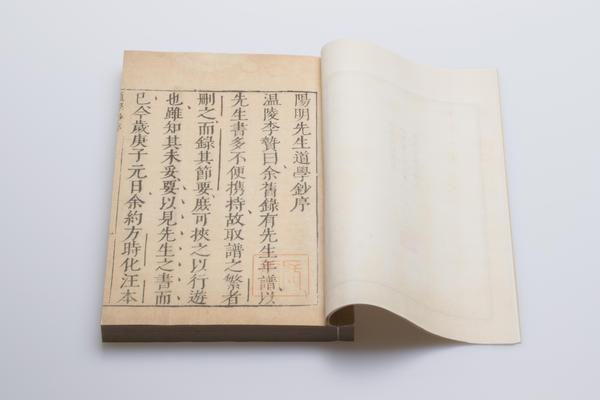 陽明先生道學鈔序
温陵李贄曰余舊錄有先生年譜以
先生書多不便携持故取譜之繁者
刪之而錄其節要庶可挾之以行遊
也雖知其未妥要以見先生之書而
已今歲庚子元日余約方時化汪本